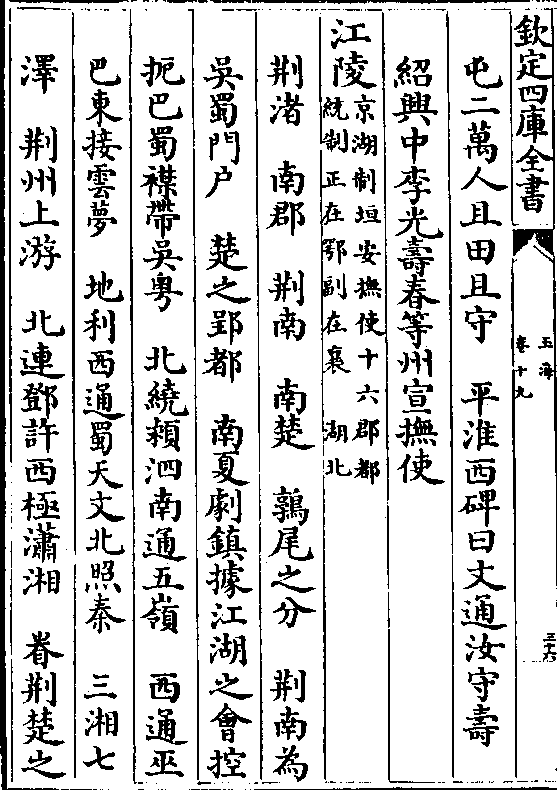 欽定四庫全書
玉海
卷十九
三十六
屯二萬人且田且守　平淮西碑曰文通汝守壽
紹興中李光壽春等州宣撫使
江陵京湖制垣安撫使十六郡都
統制正在鄂副在襄　湖北
荆渚　南郡　荆南　南楚　鶉尾之分　荆南為
吳蜀門户　楚之郢都　南夏劇鎮據江湖之會控
扼巴蜀襟帶吳粤　北繞潁泗南通五嶺　西通巫
巴東接雲夢　地利西通蜀天文北照秦　三湘七
澤　荆州上游　北連鄧許西極瀟湘　眷荆楚之